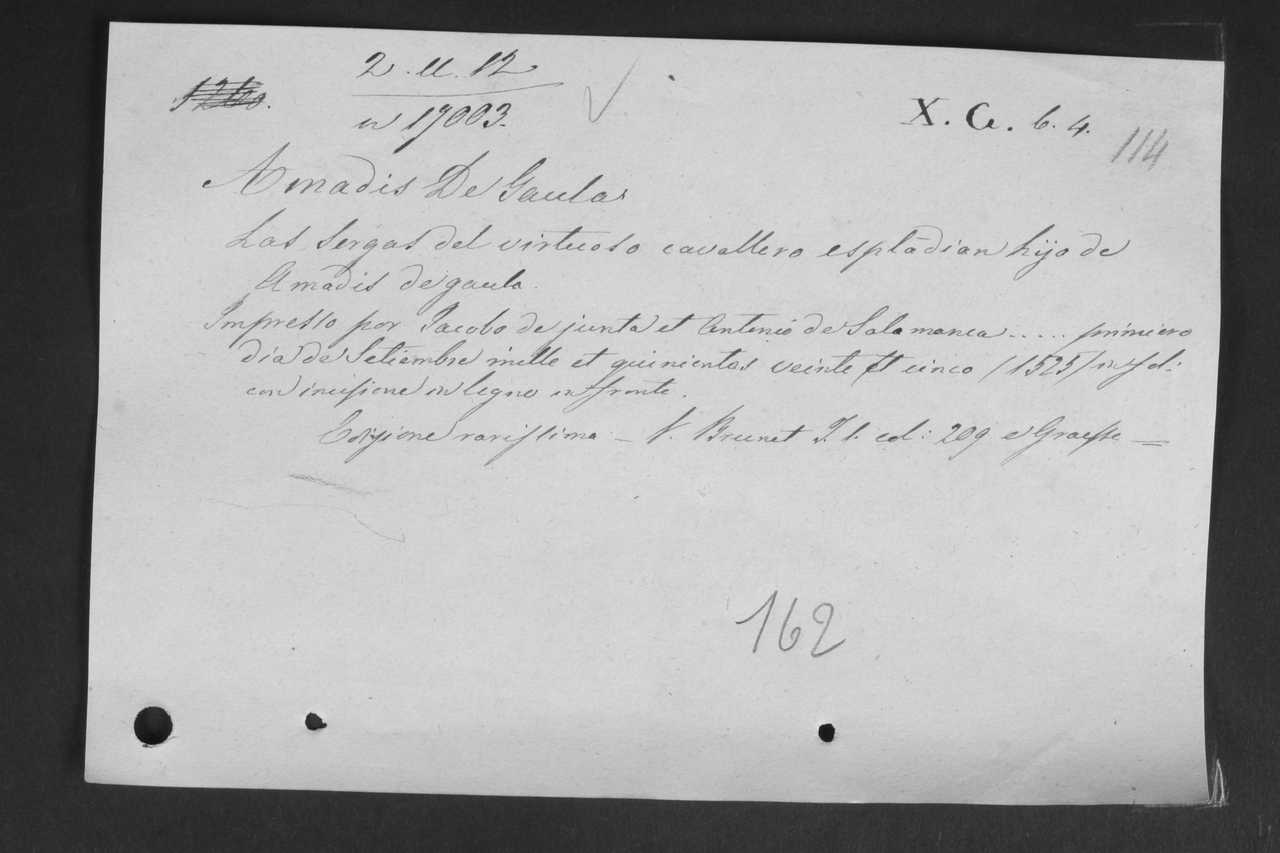 2. U. 12
n 17003.
X. G. b. 4.
114
Amadis De Gaula
Las Sergas del virtuoso cavallero espladian hijo de
Amadis de gaula.
Impresso por Jacobo de junta et Antonio de Salamanca ..... primiero
dia de Setiembre mille et quinientos veinte et cinco (1525) in fol:
con incisione in legno in fronte.
Edizione rarissima – V. Brunet T. 1. col: 209 e Graesse =
162